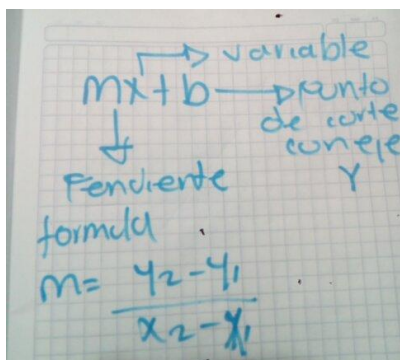 variable
mx+b punto
de corte
con eje
Y
Pendiente
formula
m= y2-y1
x2-x1